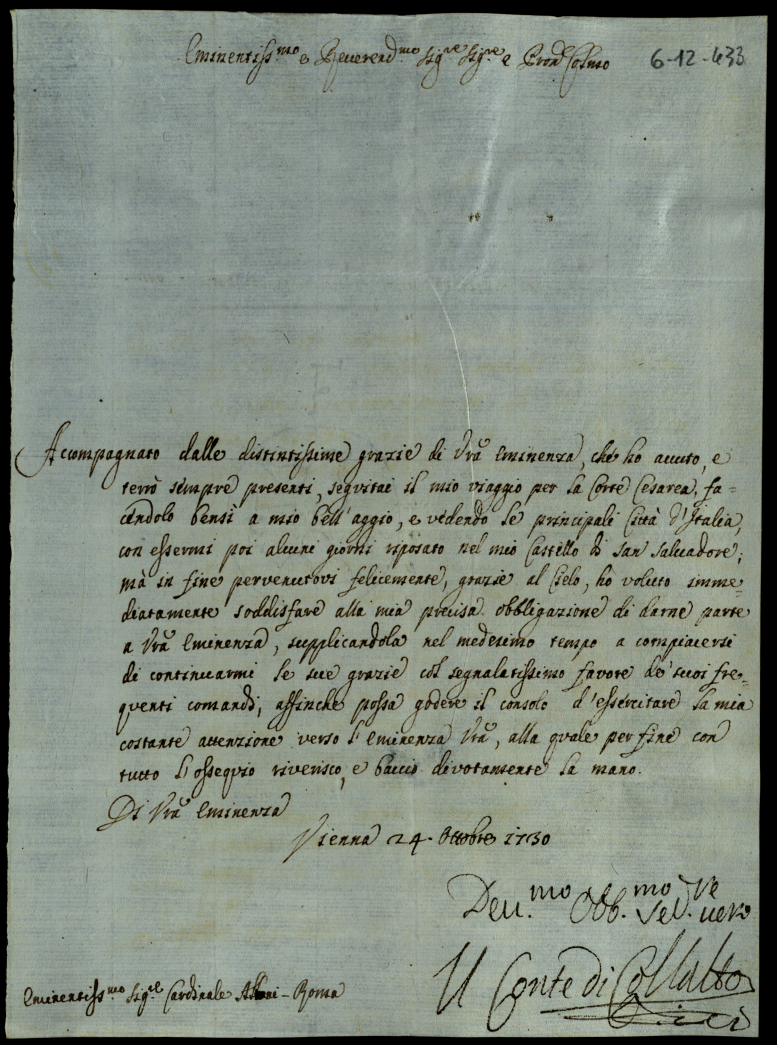 Eminentiss.mo e Reverend.mo Sig.re Sig.re e Pron. Colmo
6-12-433
Accompagnato dalle distintissime grazie di Vrã Eminenza, che ho avuto, e
terrò sempre presenti, seguitai il mio viaggio per la Corte Cesarea, fa=
cendolo bensi a mio bell'aggio, e vedendo le principali Città d'Italia,
con essermi poi alcuni giorni riposato nel mio Castello di San Salvadore;
mà in fine pervenutovi felicemente, grazie al Cielo, ho voluto imme=
diatamente soddisfare alla mia precisa obbligazione di darne parte
a Vrã Eminenza, supplicandola nel medesimo tempo a compiacersi
di continuarmi le sue grazie col segnalatissimo favore de' suoi fre=
quenti comandi, affinche possa godere il consolo d'essercitare la mia
costante attenzione verso l'Eminenza Vrã, alla quale per fine con
tutto l'ossequio riverisco, e baccio divotamente la mano.
Di Vrã Eminenza
Vienna 24. Ottobre 1730
Deu.mo Obb.mo Se.re vero
Il Conte di Collalto
Eminentiss.mo Sig.re Cardinale Albani - Roma